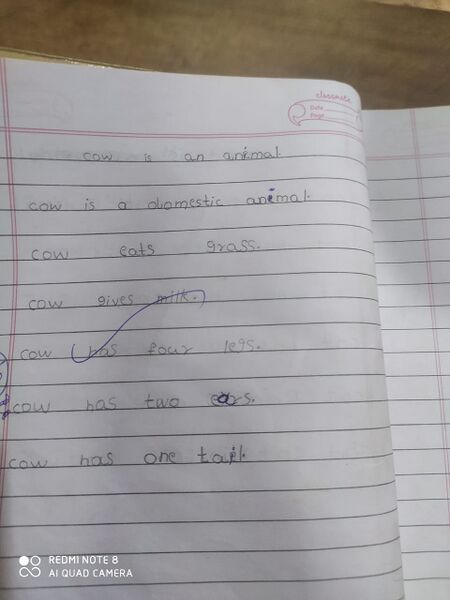 classmate
Date
Page
cow is an animal.
cow is a domestic animal.
cow eats grass.
cow gives milk.
cow has four legs.
cow has two ears.
cow has one tail.
REDMI NOTE 8
AI QUAD CAMERA